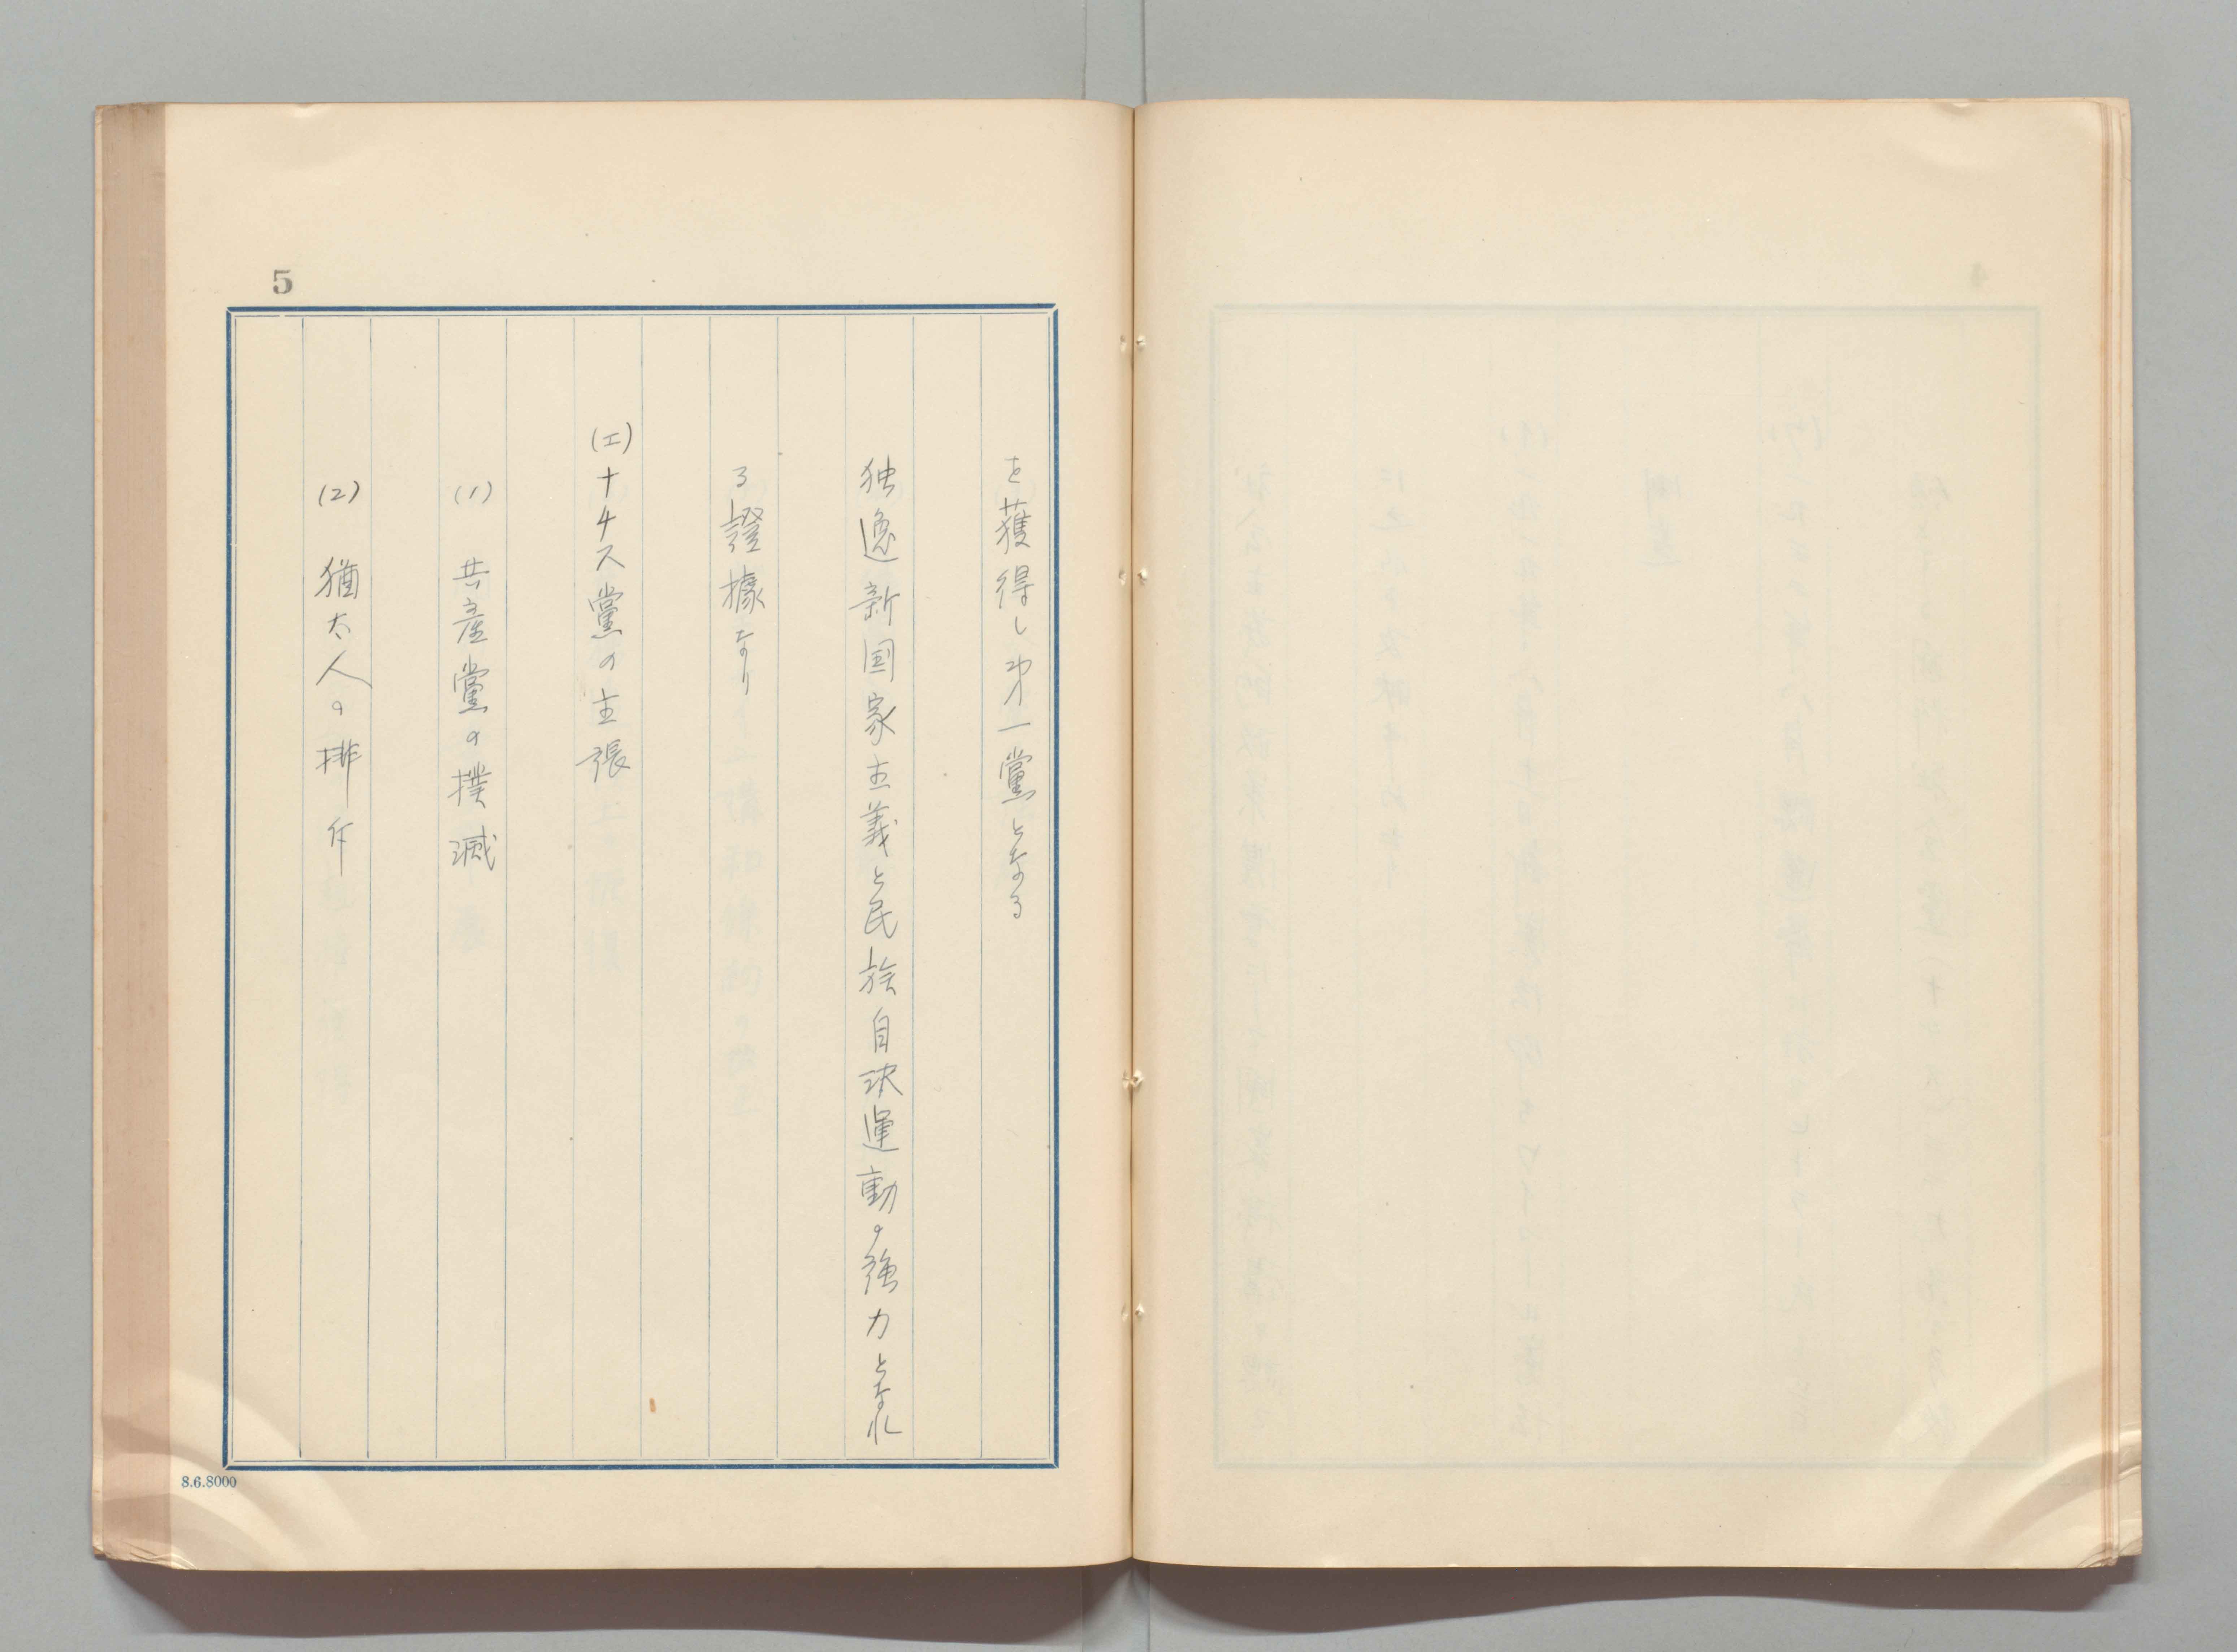 5
を獲得し第一黨となる
独逸新国家主義と民族自決運動の強力となれ
る證據なり
(エ)ナチス黨の主張
(1) 共産黨の撲滅
(2) 猶太人の排斥
8.6.8000